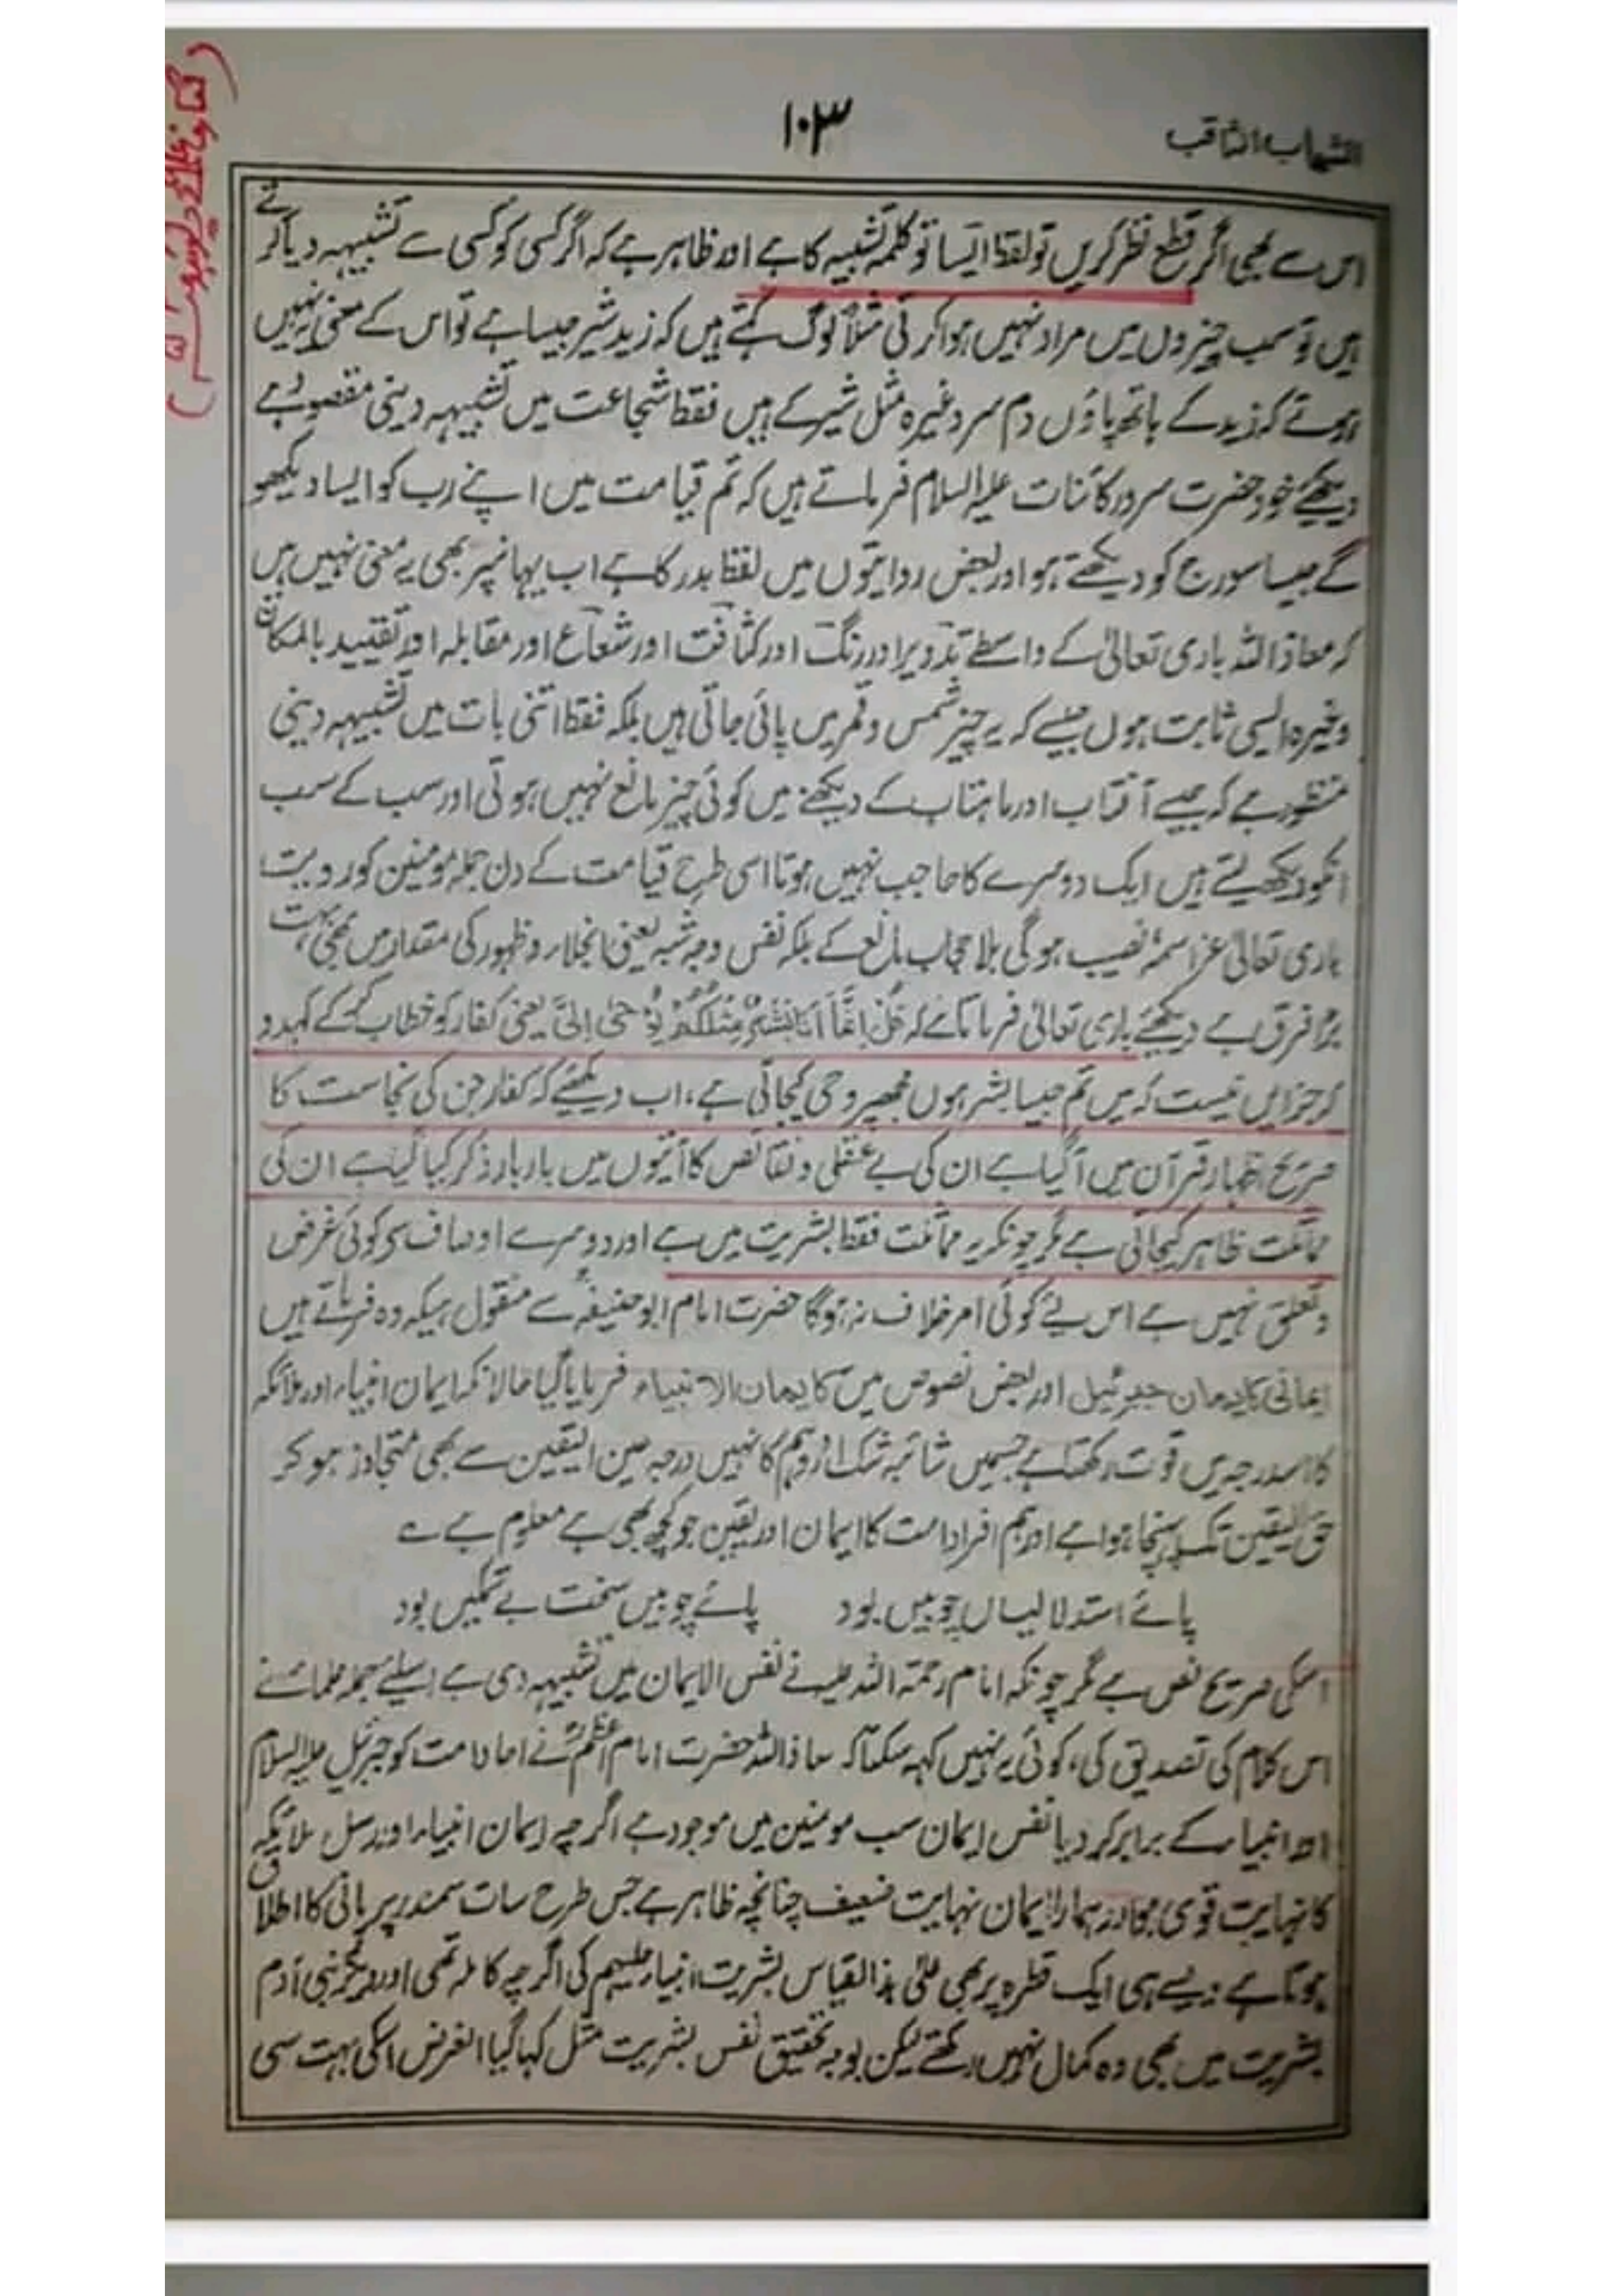 ۱۰۳
الشہاب الثاقب
اس سے بھی اگر قطع نظر کریں تو لفظ ایسا تو کلمہ تشبیہ کا ہے اور ظاہر ہے کہ اگر کسی کو کسی سے تشبیہہ دیا کرتے
ہیں تو سب چیزوں میں مراد نہیں ہوا کرتی مثلاً لوگ کہتے ہیں کہ زید شیر جیسا ہے تو اس کے معنی یہ نہیں
ہوتے کہ زید کے ہاتھ پاؤں دم سر وغیرہ مثل شیر کے ہیں فقط شجاعت میں تشبیہہ دینی مقصود ہے
دیکھئے خود حضرت سرور کائنات علیہ السلام فرماتے ہیں کہ تم قیامت میں اپنے رب کو ایسا دیکھو
گے جیسا سورج کو دیکھتے ہو اور بعض روایتوں میں لفظ بدر کا ہے اب یہانپر بھی یہ معنی نہیں ہیں
کہ معاذ اللہ باری تعالیٰ کے واسطے تدویر اور رنگ اور کثافت اور شعاع اور مقابلہ اور تقیید بالمکان
وغیرہ ایسی ثابت ہوں جیسے کہ یہ چیز شمس و قمر میں پائی جاتی ہیں بلکہ فقط اتنی بات میں تشبیہہ دینی
منظور ہے کہ جیسے آفتاب اور ماہتاب کے دیکھنے میں کوئی چیز مانع نہیں ہوتی اور سب کے سب
انکو دیکھ لیتے ہیں ایک دوسرے کا حاجب نہیں ہوتا اسی طرح قیامت کے دن جملہ مومنین کو رویت
باری تعالیٰ عز اسمہٗ نصیب ہوگی بلا حجاب مانع کے بلکہ نفس وجہ شبہ یعنی انجلاء و ظہور کی مقدار میں بھی بہت
بڑا فرق ہے دیکھئے باری تعالیٰ فرماتا ہے کہ قُلْ اِنَّمَا اَنَا بَشَرٌ مِّثْلُكُمْ يُوحٰى اِلَىَّ یعنی کفار کو خطاب کر کے کہدو
کہ جز ایں نیست کہ میں تم جیسا بشر ہوں مجھپر وحی کیجاتی ہے، اب دیکھئے کہ کفار جن کی نجاست کا
صریح اظہار قرآن میں آگیا ہے ان کی بے عقلی و نقائص کا آیتوں میں بار بار ذکر کیا گیا ہے ان کی
مماثلت ظاہر کیجاتی ہے مگر چونکہ یہ مماثلت فقط بشریت میں ہے اور دوسرے اوصاف سے کوئی غرض
و تعلق نہیں ہے اس لیئے کوئی امر خلاف نہ ہوگا حضرت امام ابو حنیفہؒ سے منقول ہیکہ وہ فرماتے ہیں
ایمانی کایمان جبرئیل اور بعض نصوص میں کایمان الانبیاء فرمایا گیا حالانکہ ایمان انبیاء اور ملائکہ
کا اسدرجہ میں قوت رکھتا ہے جسمیں شائبہ شک اور وہم کا نہیں درجہ عین الیقین سے بھی متجاوز ہو کر
حق الیقین تک پہنچا ہوا ہے اور ہم افراد امت کا ایمان اور یقین جو کچھ بھی ہے معلوم ہے ؎
پائے استدلالیاں چوبیں بود پائے چوبیں سخت بے تمکیں بود
اسکی صریح نص ہے مگر چونکہ امام رحمۃ اللہ علیہ نے نفس الایمان میں تشبیہہ دی ہے اسیلئے جملہ علمائنے
اس کلام کی تصدیق کی، کوئی یہ نہیں کہہ سکتا کہ معاذ اللہ حضرت امام اعظمؒ نے احاد امت کو جبرئیل علیہ السلام
اور انبیاء کے برابر کر دیا نفس ایمان سب مومنین میں موجود ہے اگرچہ ایمان انبیاء اور رسل ملائکہ
کا نہایت قوی ہمارا ایمان نہایت ضعیف چنانچہ ظاہر ہے جس طرح سات سمندر پر پانی کا اطلاق
ہوتا ہے ویسے ہی ایک قطرہ پر بھی علیٰ ہذا القیاس بشریت انبیاء علیہم کی اگرچہ کاملہ تھی اور دیگر بنی آدم
بشریت میں بھی وہ کمال نہیں رکھتے لیکن بوجہ تحقیق نفس بشریت مثل کہا گیا الغرض اسکی بہت سی